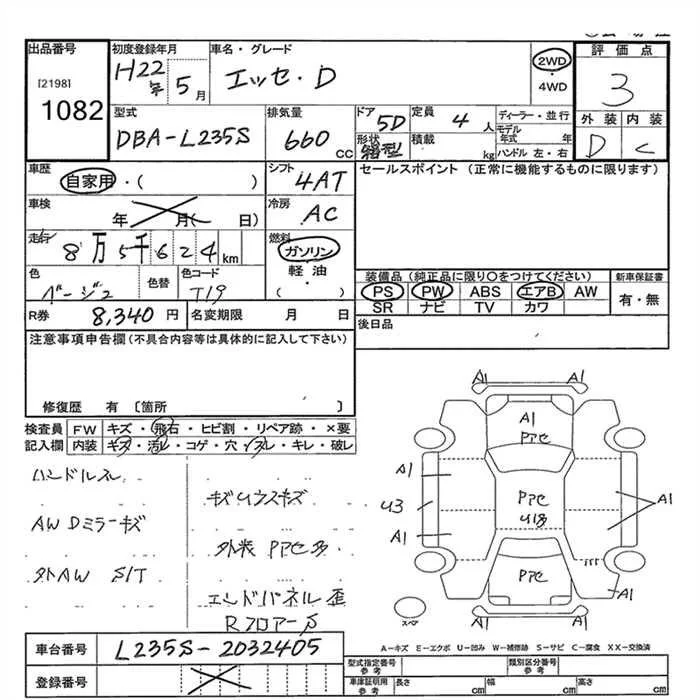 出品番号
[2198]
1082
初度登録年月
H22年 5月
車名・グレード
エッセ・D
2WD
・4WD
評価点
3
外装 内装
D C
型式
DBA-L235S
排気量
660 CC
ドア
5D
形状
箱型
定員
4 人
積載
kg
ディーラー・並行
モデル年式 年
ハンドル 左・右
車歴
自家用・( )
シフト
4AT
セールスポイント (正常に機能するものに限ります)
車検
年 月( 日)
冷房
AC
走行
8万5千624 km
燃料
ガソリン
軽・油
( )
色
ベージュ
色替
色コード
T19
装備品 (純正品に限り〇をつけてください)
PS PW ABS エアB AW
SR ナビ TV カワ
新車保証書
有・無
R券 8,340 円
名変期限 月 日
後日品
注意事項申告欄 (不具合内容等は具体的に記入して下さい)
修復歴 有 〔箇所 〕
検査員 FW キズ・飛石・ヒビ割・リペア跡・×要
記入欄 内装 キズ・汚レ・コゲ・穴・スレ・キレ・破レ
ハンドルスレ
AW Dミラーキズ
外AW S/T
キズ
外装 Pアセ多
エンドパネル 歪
Rフロアー
A1 A1
A1
Pアセ
A1
U3
A1
Pアセ
A1
Pアセ
A1
スペア
A-キズ E-エクボ U-凹み W-補修跡 S-サビ C-腐食 XX-交換済
車台番号 L235S-2032405
登録番号
型式指定番号
参考
類別区分番号
参考
車庫証明用
参考
長さ cm 幅 cm 高さ cm